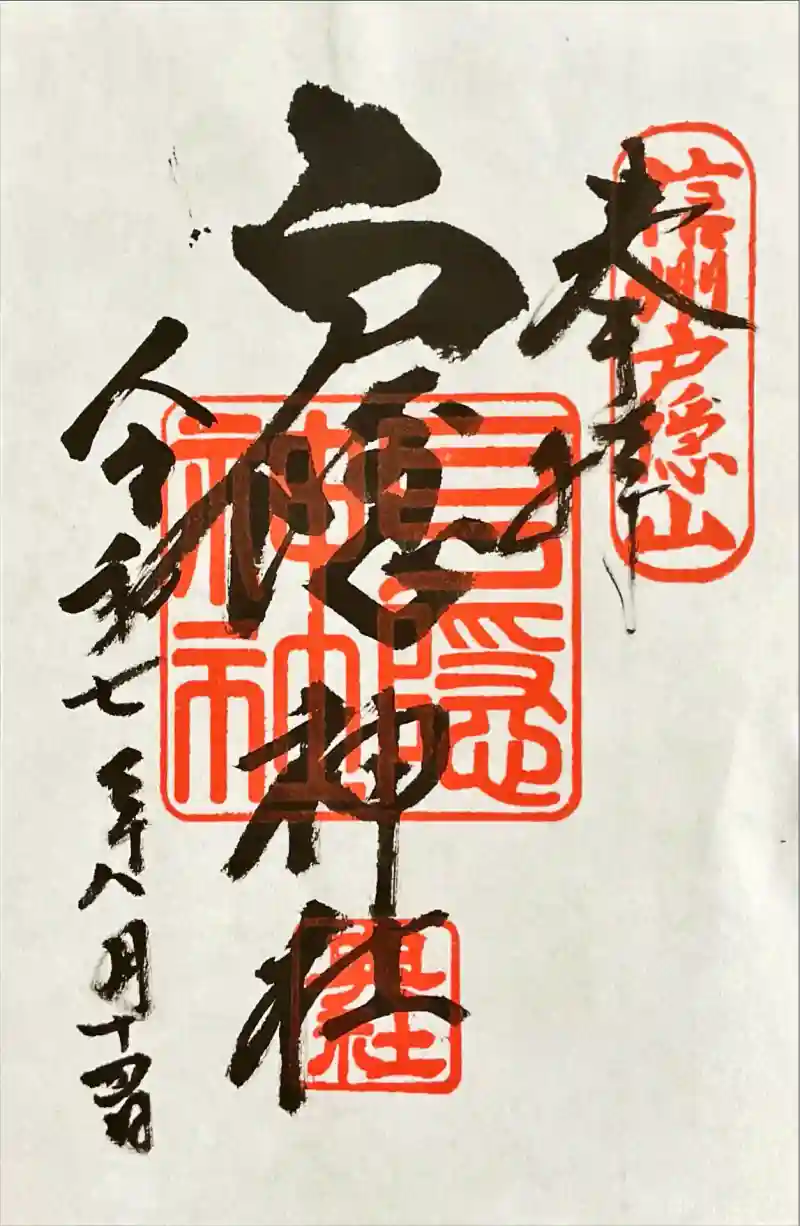 信州戸隠山
奉拝
戸隠神社
戸隠神社
奥社
令和七年八月十四日